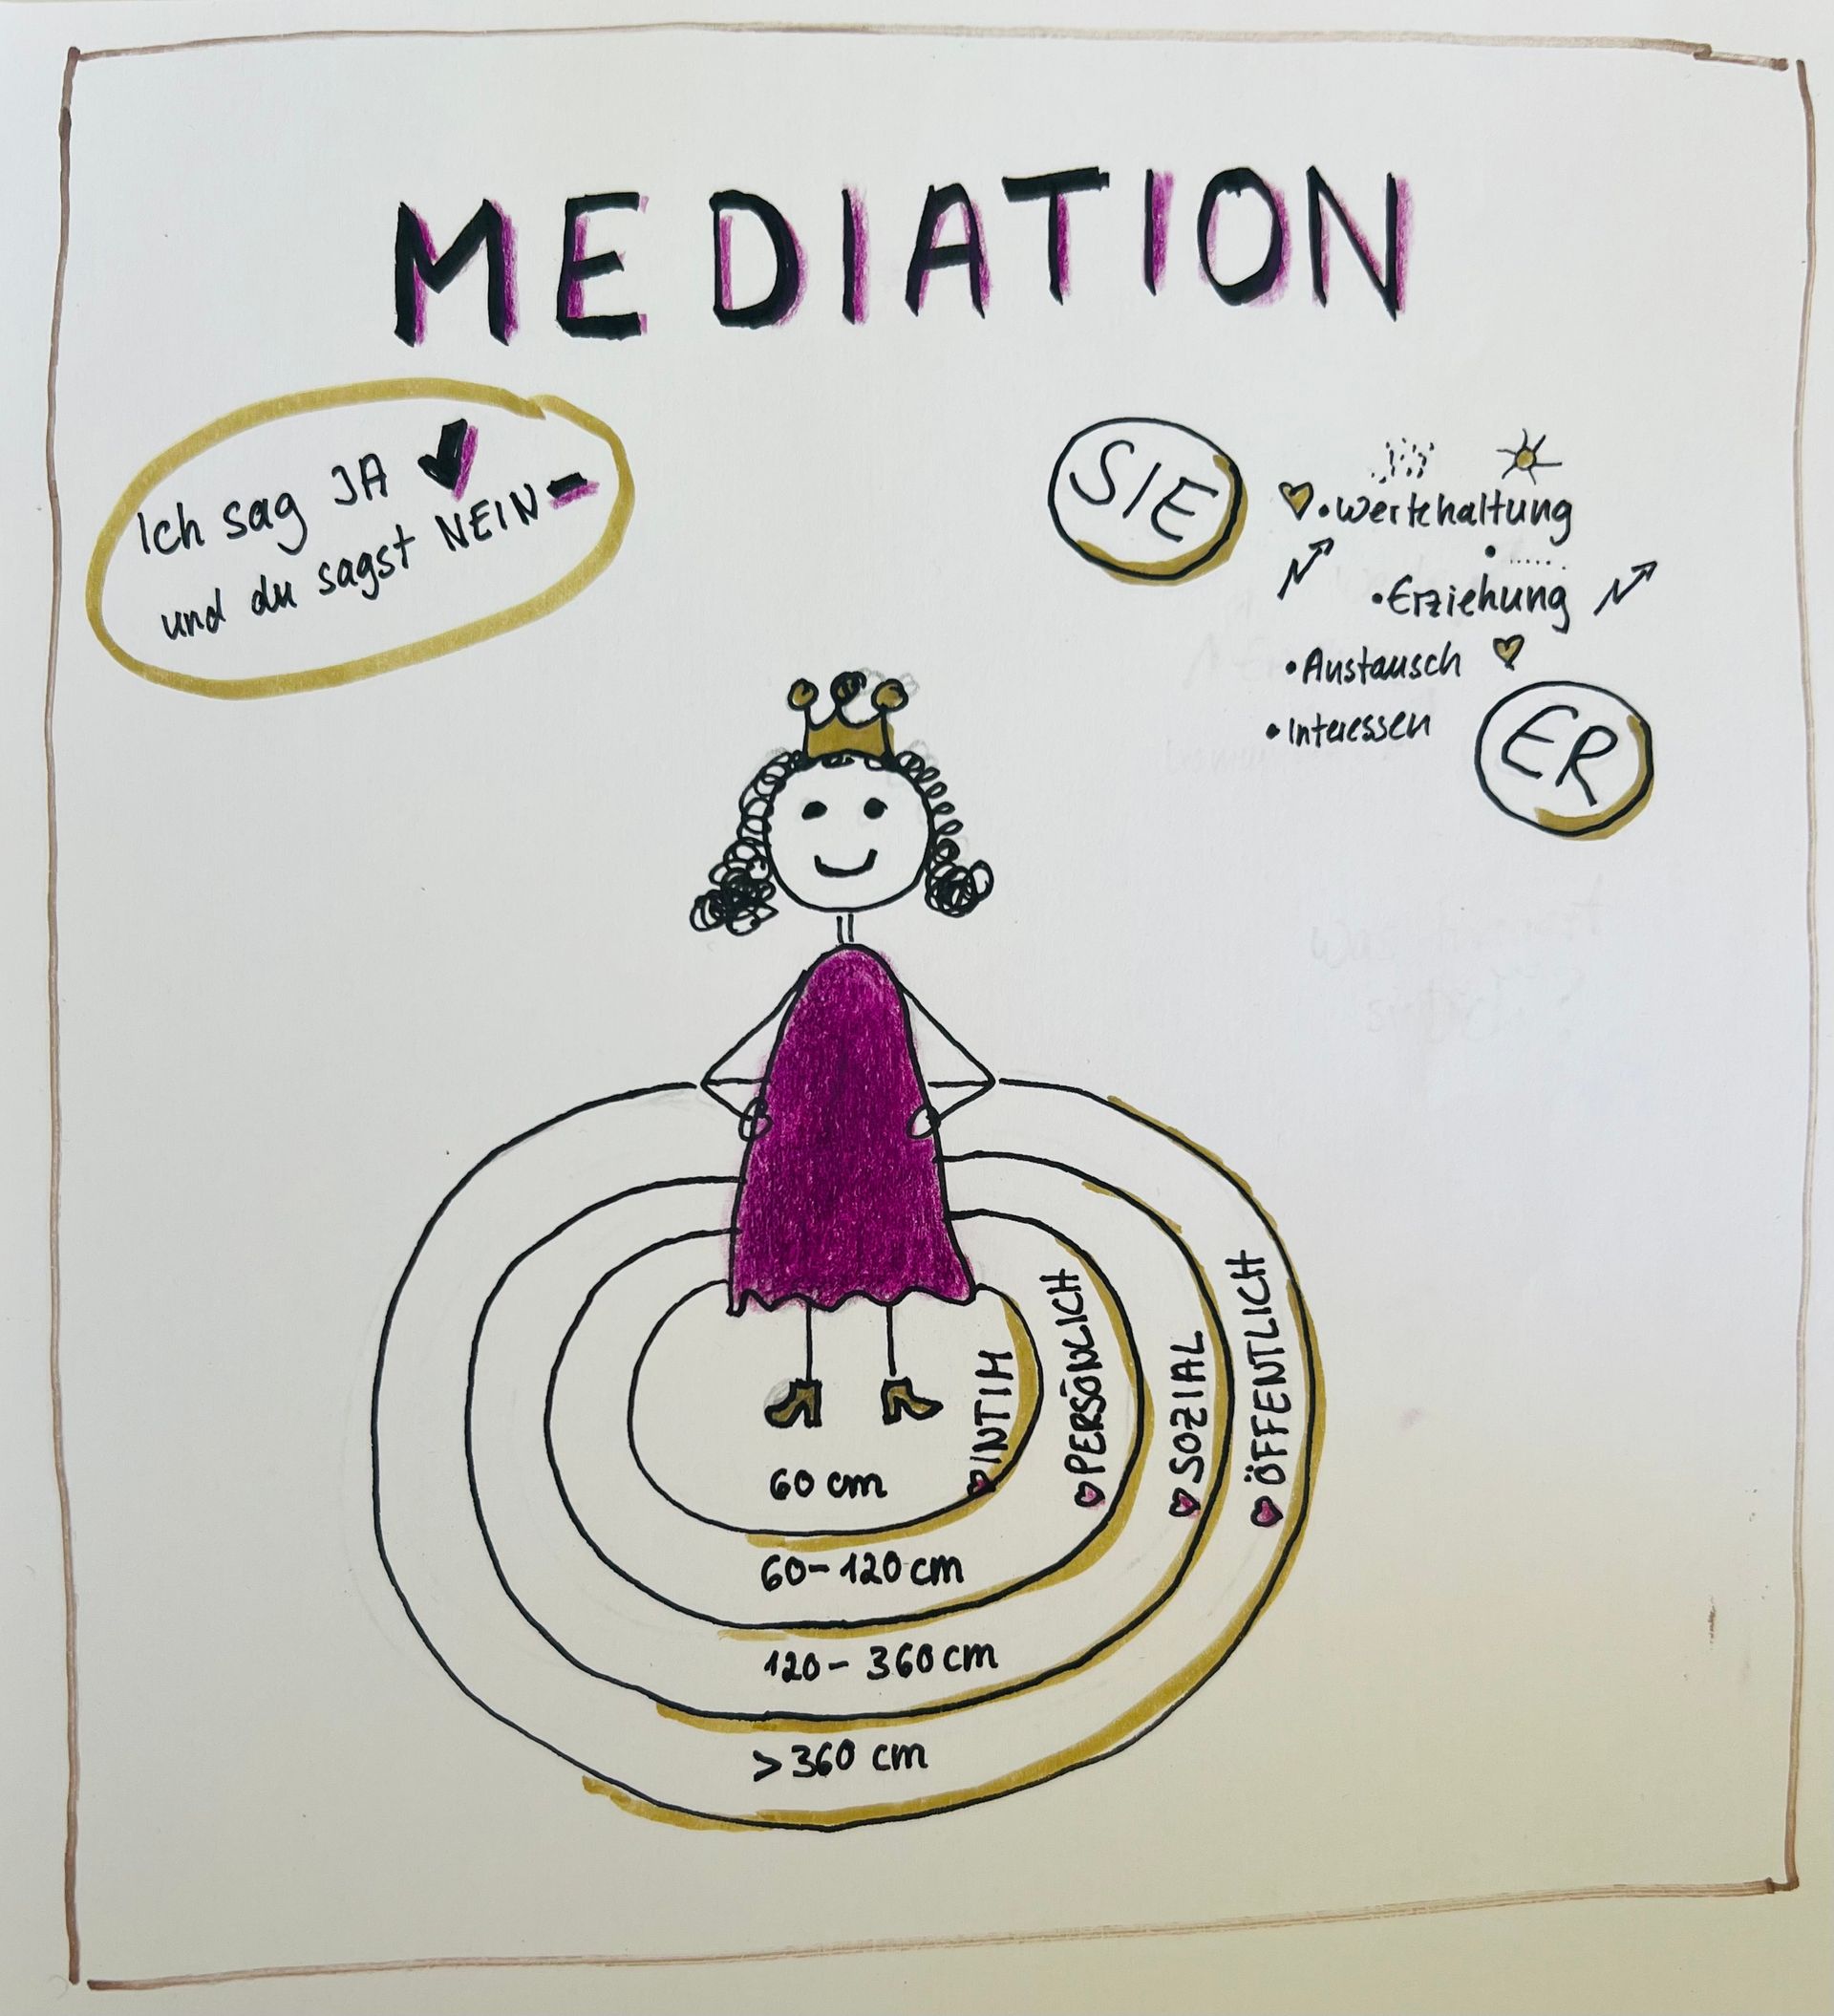 MEDIATION
Ich sag JA
und du sagst NEIN
SIE
• Wertehaltung
• Erziehung
• Austausch
• Interessen
ER
INTIM
PERSÖNLICH
SOZIAL
ÖFFENTLICH
60 cm
60-120 cm
120- 360 cm
>360 cm